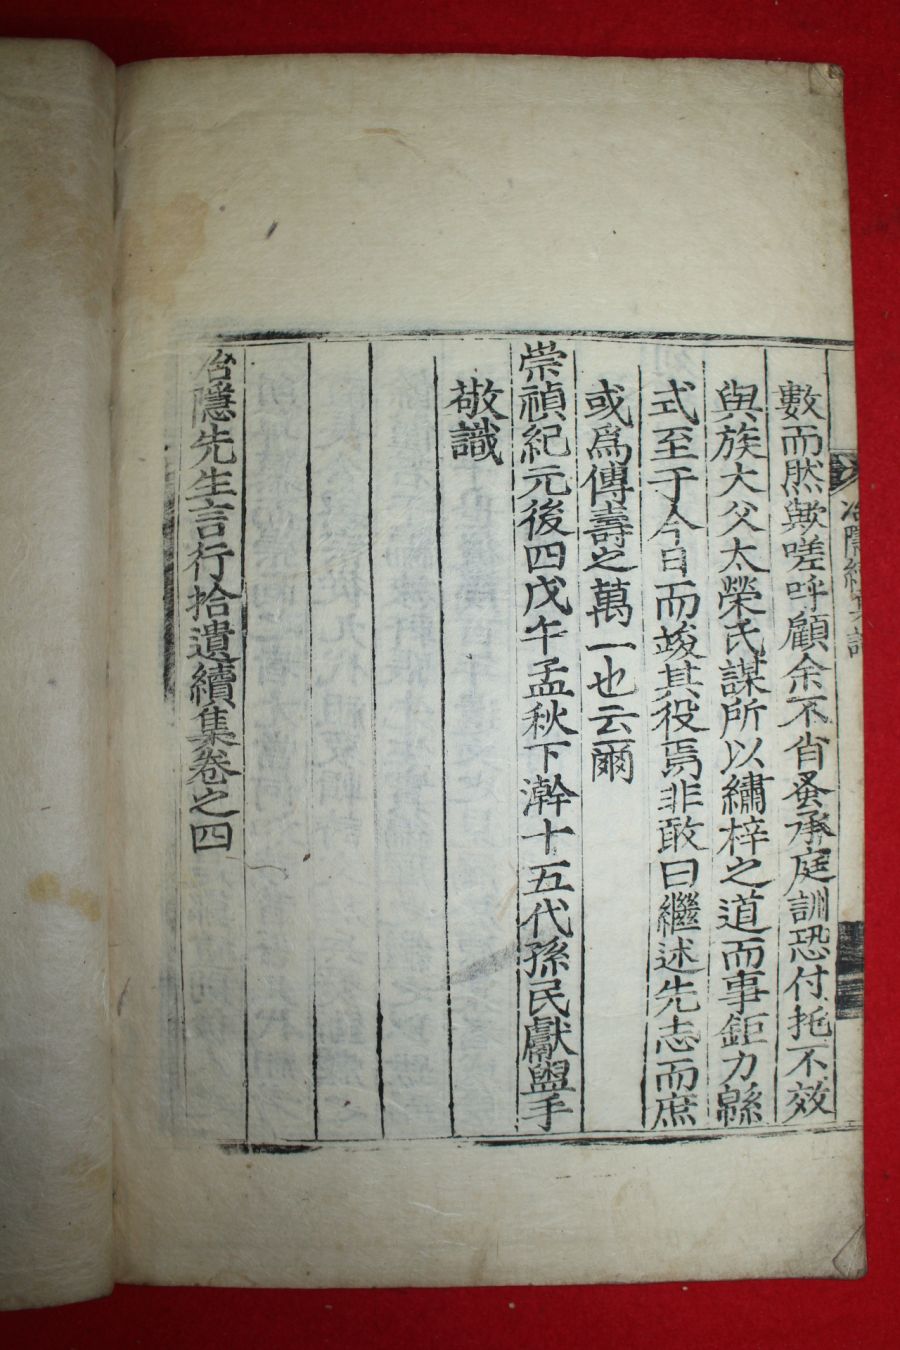 數而然歟嗟呼顧余不肖蚤承庭訓恐付托不效
與族大父太榮氏謀所以繡梓之道而事鉅力緜
式至于今日而竣其役焉非敢曰繼述先志而庶
或爲傳壽之萬一也云爾
崇禎紀元後四戊午孟秋下澣十五代孫民獻盥手
敬識
冶隱先生言行拾遺續集卷之四